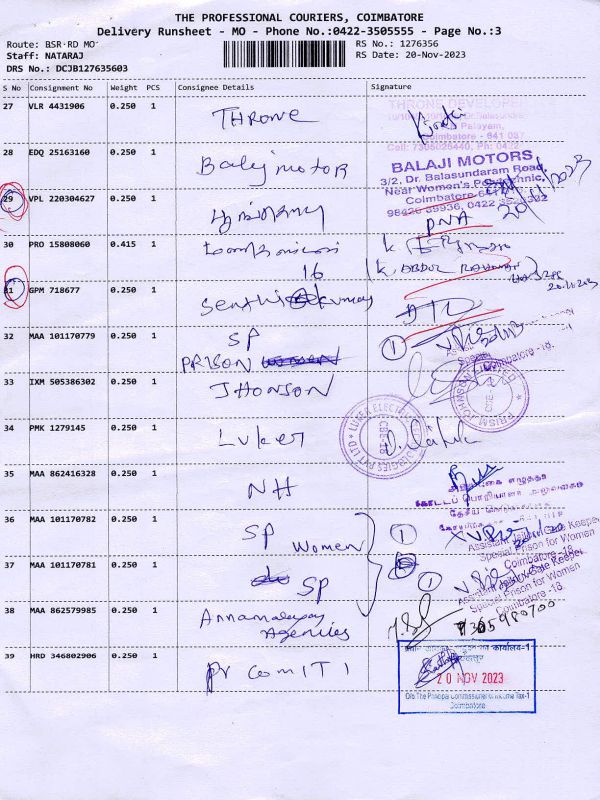 THE PROFESSIONAL COURIERS, COIMBATORE
Delivery Runsheet - MO - Phone No.:0422-3505555 - Page No.:3
Route: BSR-RD MO
RS No.: 1276356
Staff: NATARAJ
RS Date: 20-Nov-2023
DRS No.: DCJB127635603
S No Consignment No Weight PCS Consignee Details Signature
27 VLR 4431906 0.250 1 THRONE
THRONE DEVELOPER
Palayam,
Coimbatore - 641 037
28 EDQ 25163160 0.250 1 Balaji motor
BALAJI MOTORS
3/2, Dr. Balasundaram Road,
Near Women's Polytechnic,
Coimbatore
20/11/2023
29 VPL 220304627 0.250 1
DNA
30 PRO 15808060 0.415 1
16
(K. ABDUL RAHMAN)
20.11.203
31 GPM 718677 0.250 1 Senthil kumar
DTD
32 MAA 101170779 0.250 1 SP
PRISON
1
Special
Coimbatore -18.
33 IXM 505386302 0.250 1 JHONSON
34 PMK 1279145 0.250 1 Luker
LUKER ELECTRIC
CBE-18
35 MAA 862416328 0.250 1 NH
36 MAA 101170782 0.250 1 SP Women
1
Assistant Jailor/Gate Keeper
Special Prison for Women
Coimbatore -18.
37 MAA 101170781 0.250 1 SP
1
Assistant Jailor/Gate Keeper
Special Prison for Women
Coimbatore -18.
38 MAA 862579985 0.250 1 Annamalayar
Agencies
39 HRD 346802906 0.250 1 Pr Com ITI
कार्यालय-1
20 NOV 2023
O/o The Principal Commissioner of Income Tax-1
Coimbatore